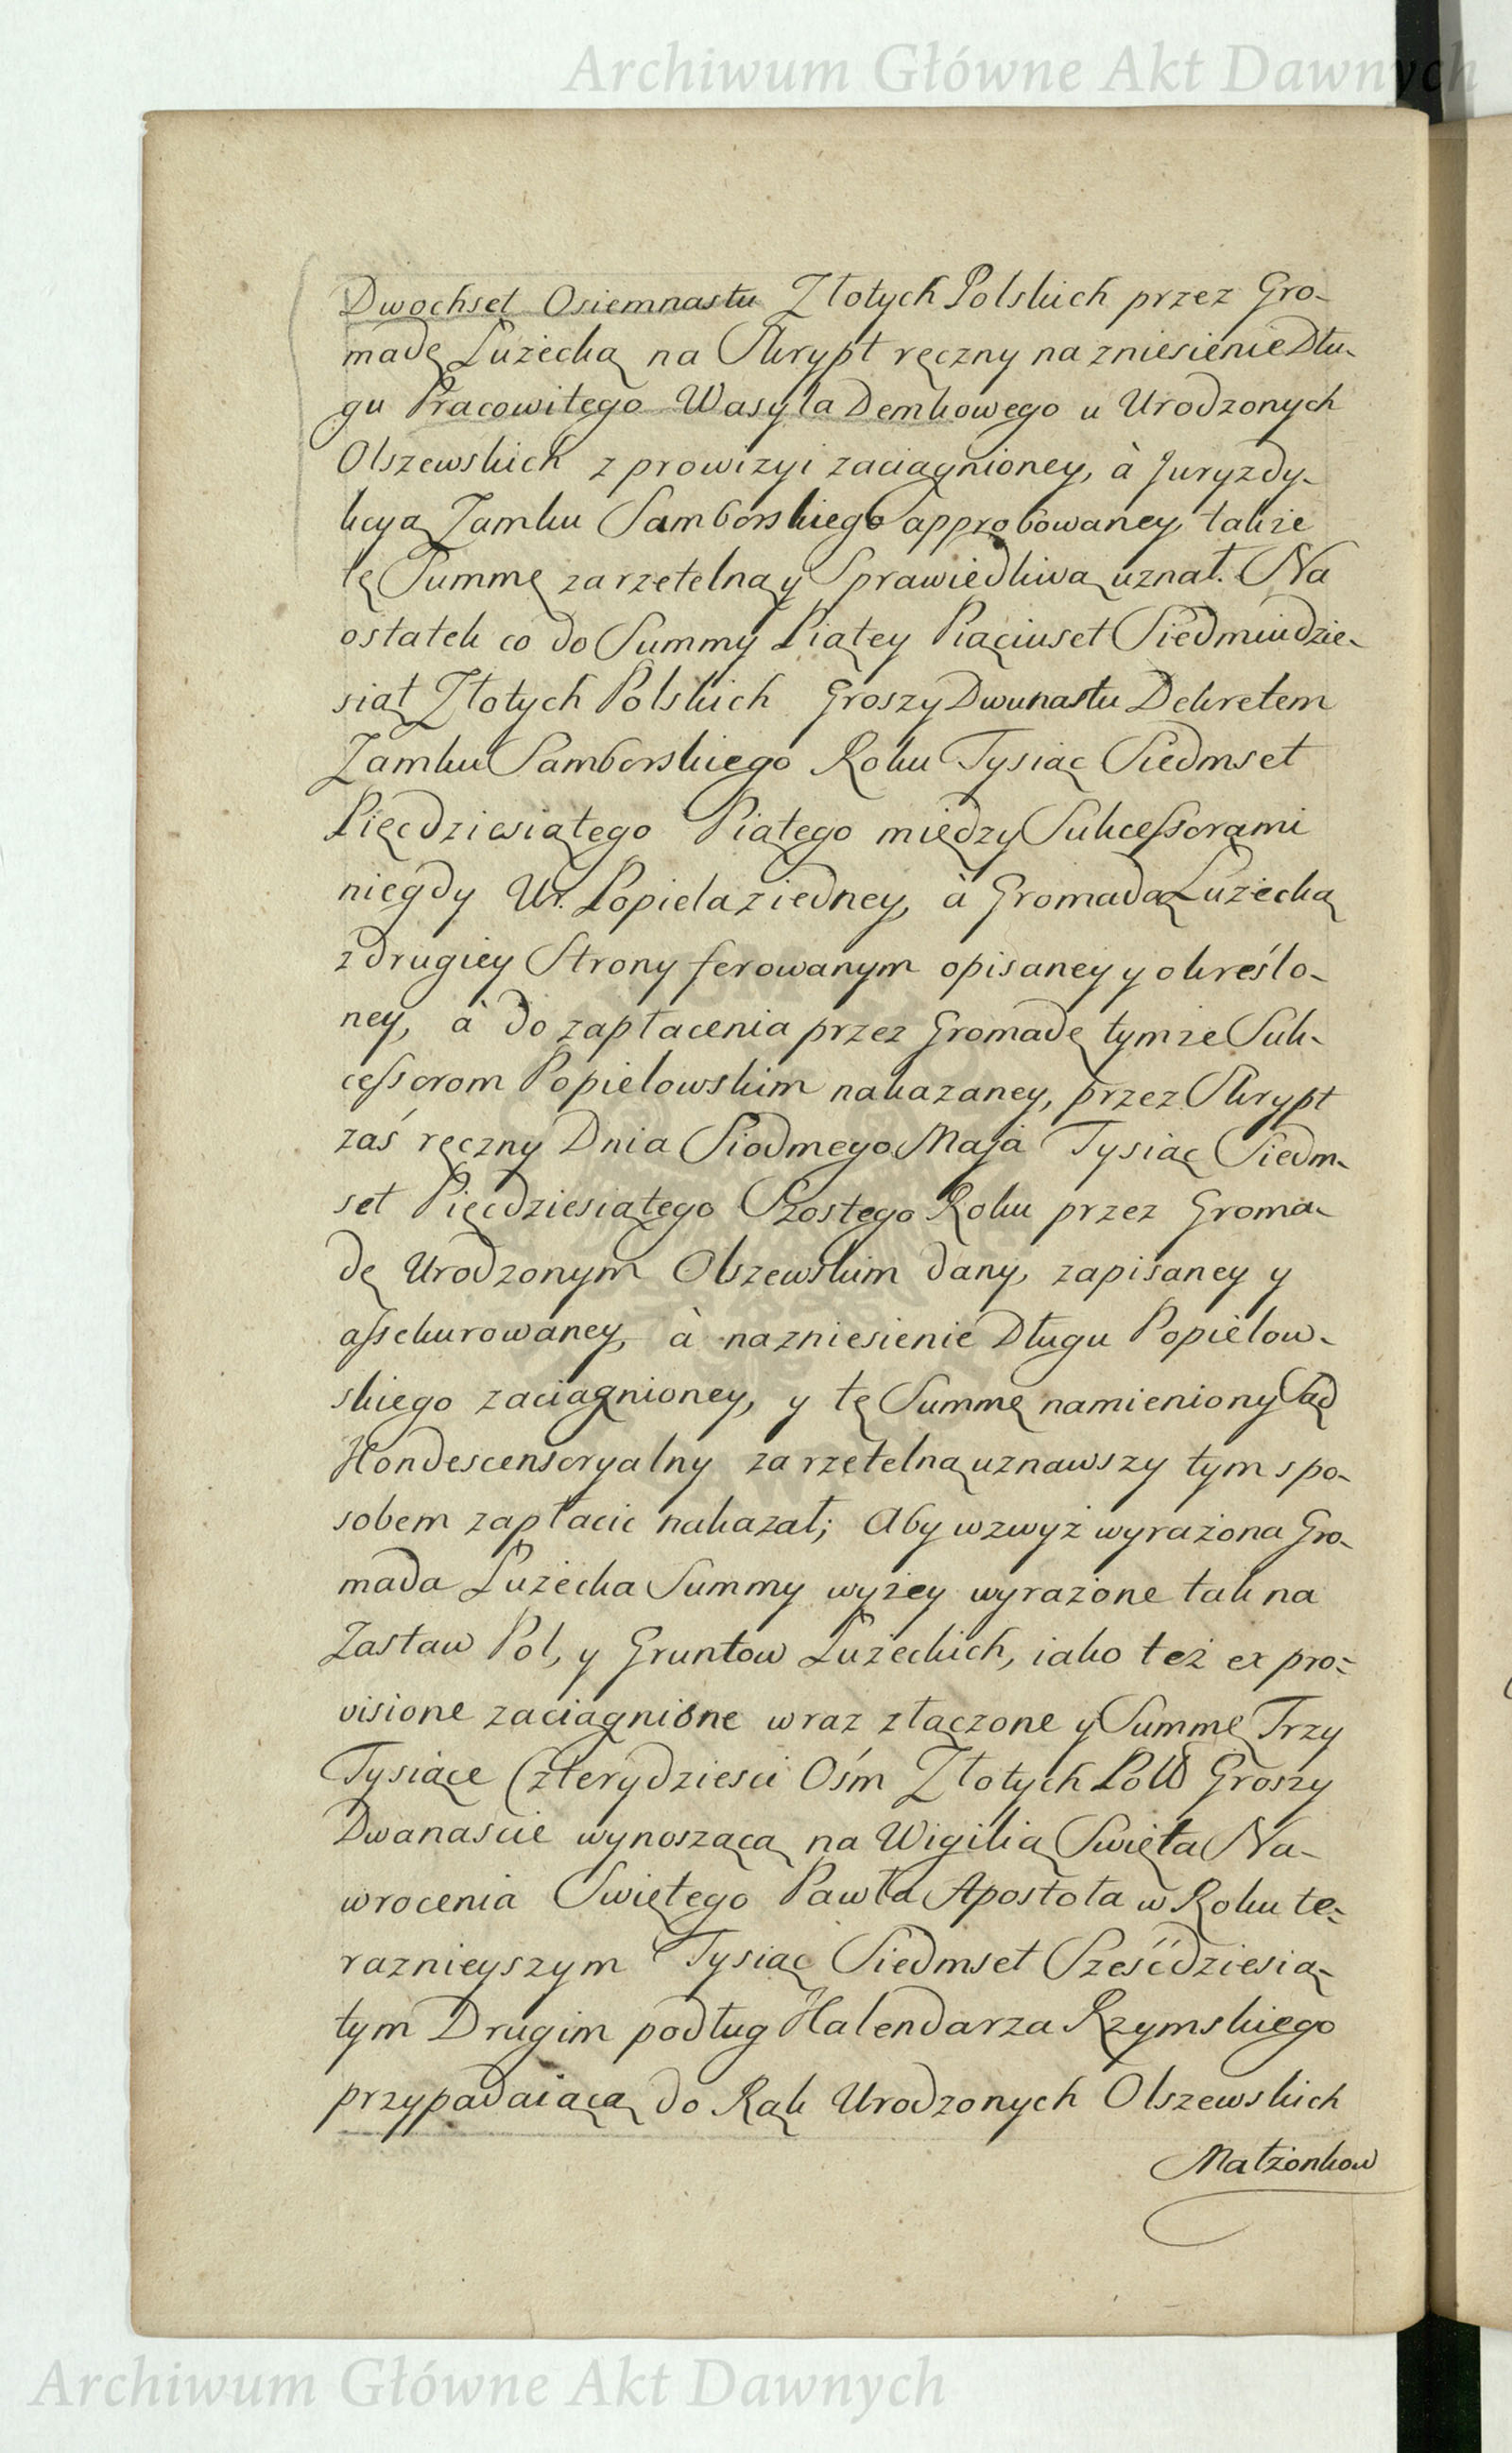 Archiwum Główne Akt Dawnych
Dwochset Osiemnastu Złotych Polskich przez Gro-
madę Łużecką na Skrypt ręczny na zniesienie Dłu-
gu Pracowitego Wasyla Demkowego u Urodzonych
Olszewskich z prowizyi zaciągnioney, à Juryzdy-
kcyą Zamku Samborskiego approbowaney także
tę Summę za rzetelną y Sprawiedliwą uznał. Na
ostatek co do Summy Piątey Piąciuset Siedmiudzie-
siąt Złotych Polskich Groszy Dwunastu Dekretem
Zamku Samborskiego Roku Tysiąc Siedmset
Pięcdziesiątego Piątego między Sukcessorami
niegdy Ur. Popiela z iedney, à Gromadą Łużecką
z drugiey Strony ferowanym opisaney y okreśło-
ney, à do zapłacenia przez Gromadę tymże Suk-
cessorom Popielowskim nakazaney, przez Skrypt
zaś ręczny Dnia Siodmego Maja Tysiąc Siedm-
set Pięcdziesiątego Szostego Roku przez Groma-
dę Urodzonym Olszewskim dany, zapisaney y
assekurowaney, à na zniesienie Długu Popielow-
skiego zaciągnioney, y tę Summę namieniony Sąd
Kondescensoryalny za rzetelną uznawszy tym spo-
sobem zapłacic nakazał; Aby wzwyż wyrażona Gro-
mada Łużecka Summy wyżey wyrażone tak na
Zastaw Pol, y Gruntow Łużeckich, iako też ex pro-
visione zaciągnione wraz złączone y Summę Trzy
Tysiące Czterydziesci Ośm Złotych Polł Groszy
Dwanascie wynoszącą na Wigilią Swięta Na-
wrocenia Swiętego Pawła Apostoła w Roku te-
raznieyszym Tysiąc Siedmset Sześćdziesią-
tym Drugim podług Kalendarza Rzymskiego
przypadaiącą do Rąk Urodzonych Olszewskich
Małżonkow
Archiwum Główne Akt Dawnych